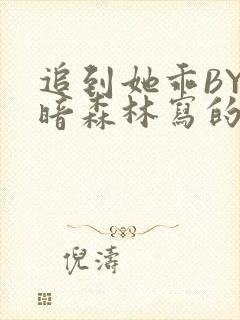 追到她乖BY
暗森林寫的
倪濤